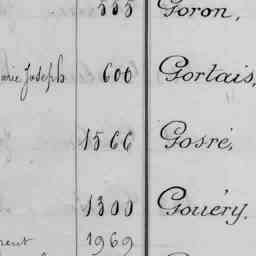 555 Goron,
Marie Joseph 600 Gortais,
1566 Gosré,
1300 Gouéry,
1969